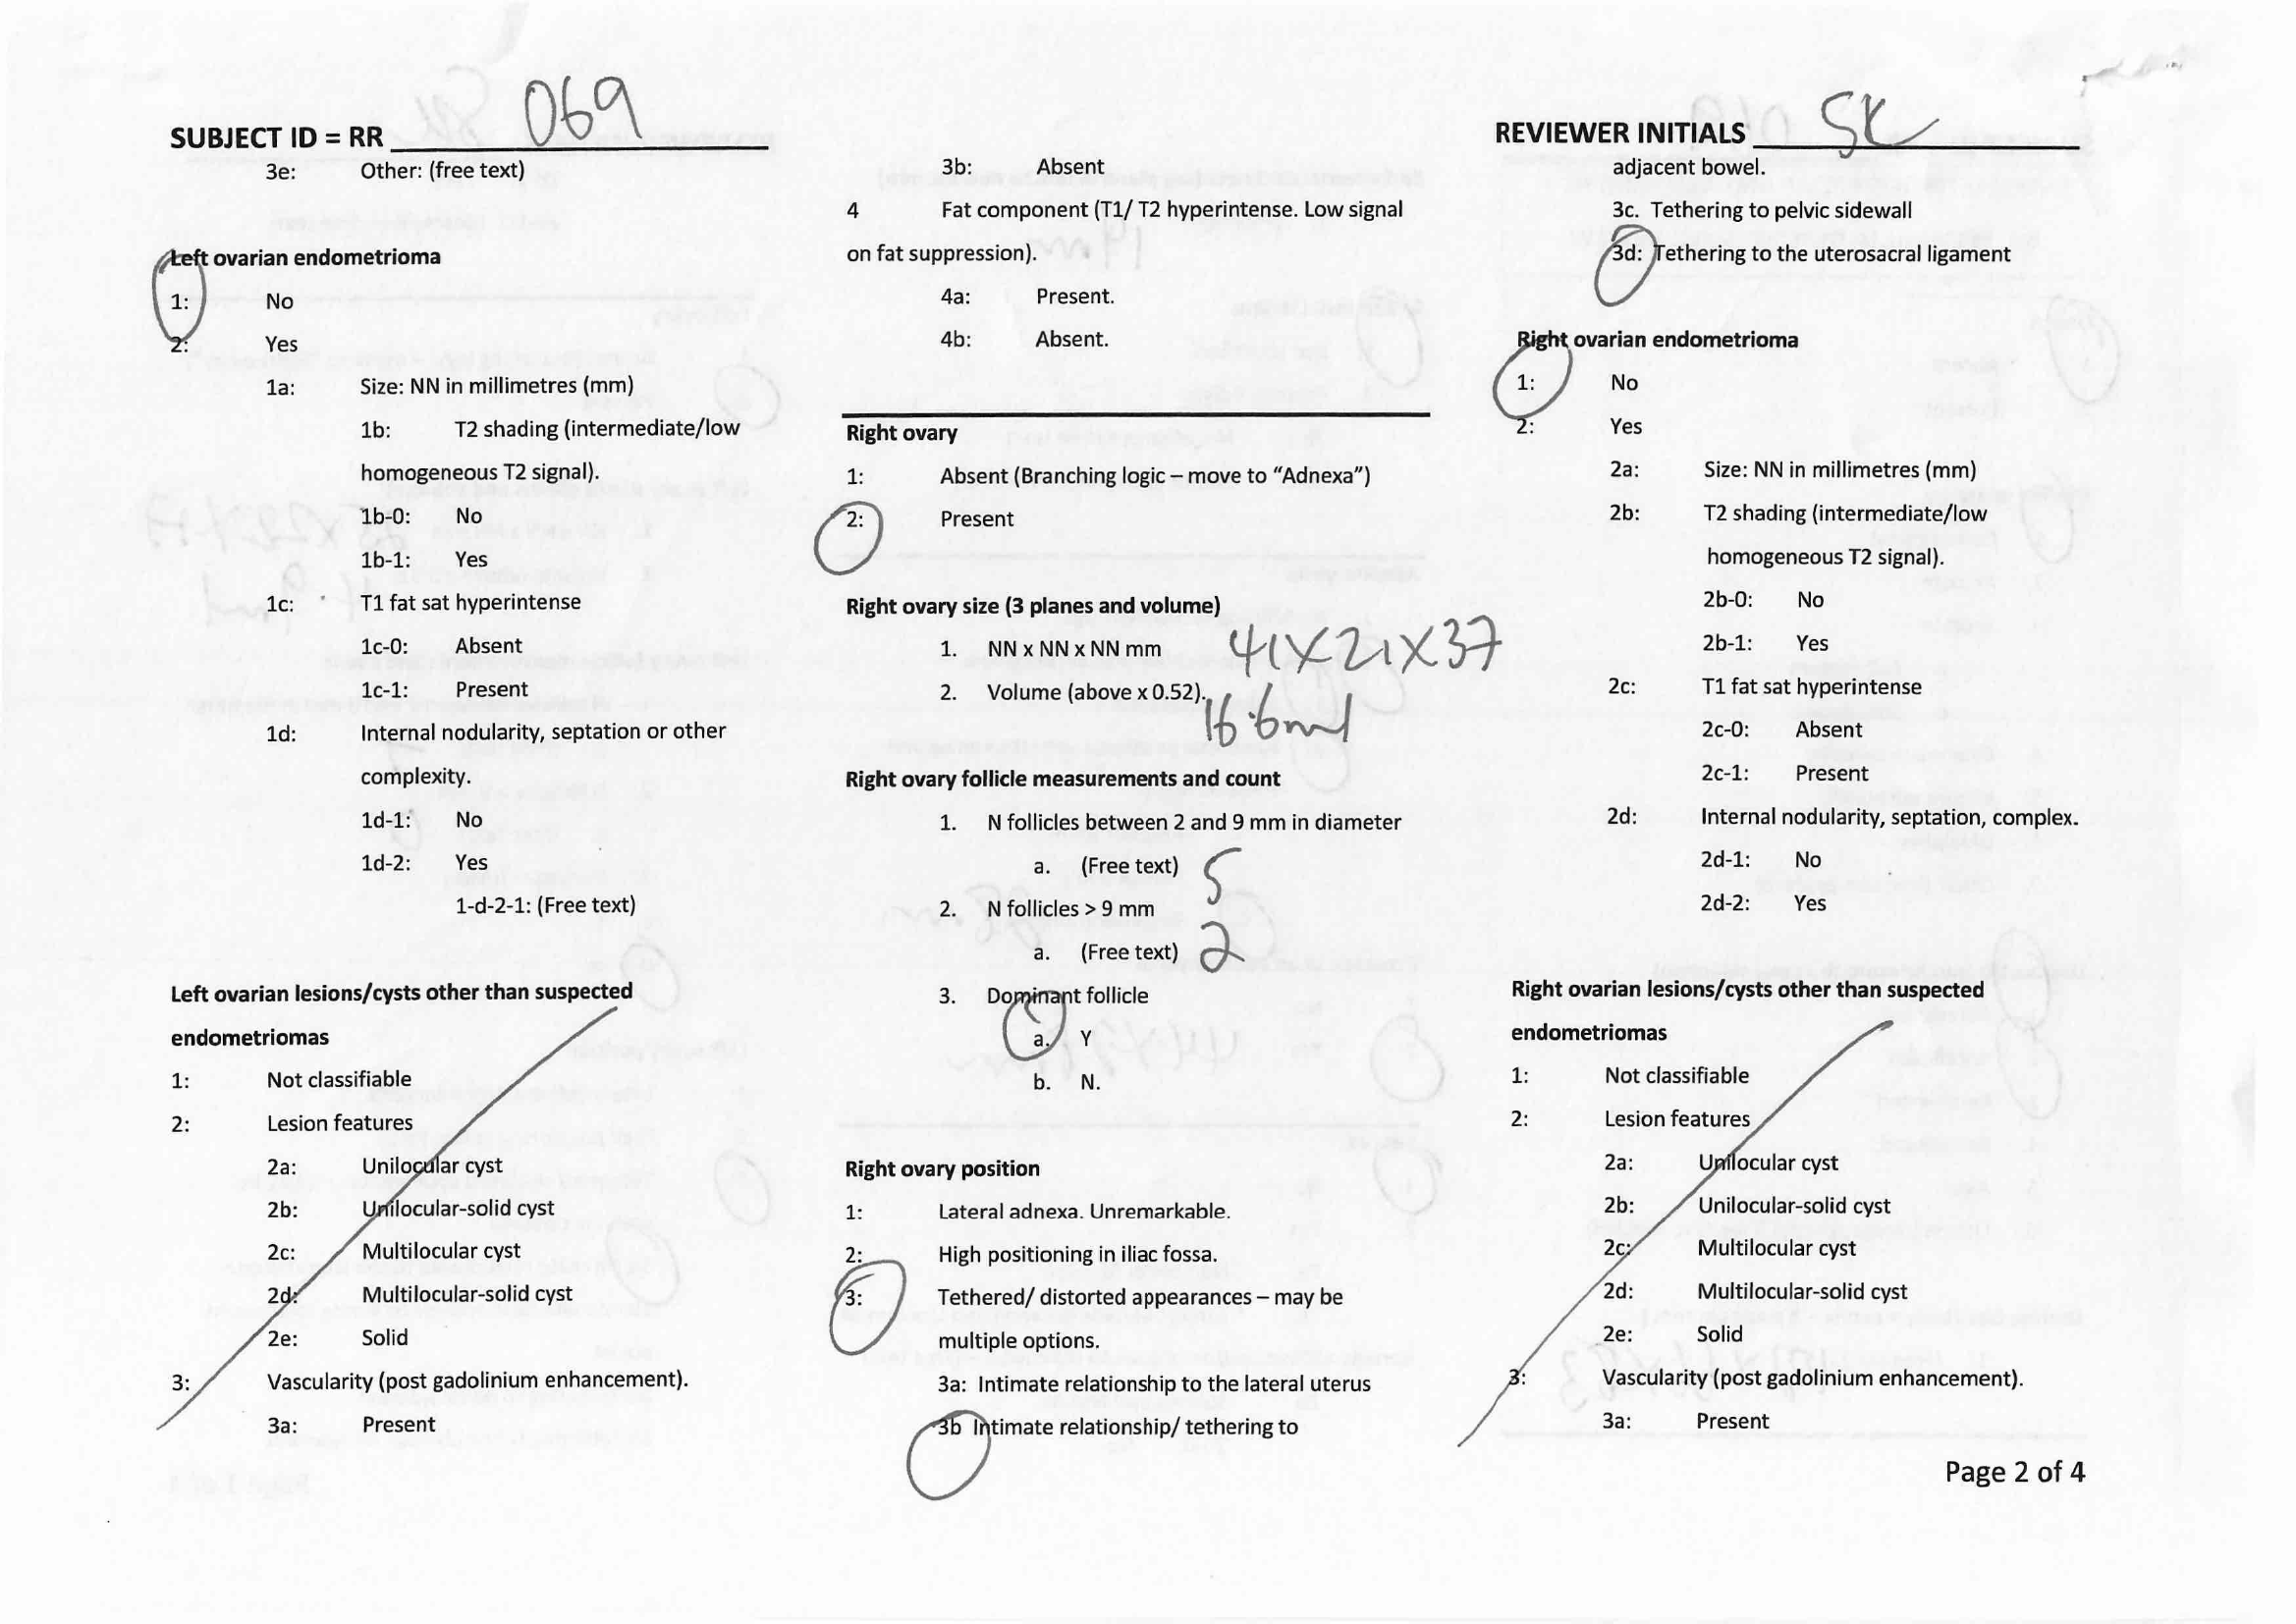 SUBJECT ID = RR 069
3e: Other: (free text)
Left ovarian endometrioma
1: No
2: Yes
1a: Size: NN in millimetres (mm)
1b: T2 shading (intermediate/low
homogeneous T2 signal).
1b-0: No
1b-1: Yes
1c: T1 fat sat hyperintense
1c-0: Absent
1c-1: Present
1d: Internal nodularity, septation or other
complexity.
1d-1: No
1d-2: Yes
1-d-2-1: (Free text)
Left ovarian lesions/cysts other than suspected
endometriomas
1: Not classifiable
2: Lesion features
2a: Unilocular cyst
2b: Unilocular-solid cyst
2c: Multilocular cyst
2d: Multilocular-solid cyst
2e: Solid
3: Vascularity (post gadolinium enhancement).
3a: Present
3b: Absent
4 Fat component (T1/ T2 hyperintense. Low signal
on fat suppression).
4a: Present.
4b: Absent.
Right ovary
1: Absent (Branching logic – move to “Adnexa”)
2: Present
Right ovary size (3 planes and volume)
1. NN x NN x NN mm 41X21X37
2. Volume (above x 0.52). 16.6ml
Right ovary follicle measurements and count
1. N follicles between 2 and 9 mm in diameter
a. (Free text) 5
2. N follicles > 9 mm
a. (Free text) 2
3. Dominant follicle
a. Y
b. N.
Right ovary position
1: Lateral adnexa. Unremarkable.
2: High positioning in iliac fossa.
3: Tethered/ distorted appearances – may be
multiple options.
3a: Intimate relationship to the lateral uterus
3b Intimate relationship/ tethering to
REVIEWER INITIALS SK
adjacent bowel.
3c. Tethering to pelvic sidewall
3d: Tethering to the uterosacral ligament
Right ovarian endometrioma
1: No
2: Yes
2a: Size: NN in millimetres (mm)
2b: T2 shading (intermediate/low
homogeneous T2 signal).
2b-0: No
2b-1: Yes
2c: T1 fat sat hyperintense
2c-0: Absent
2c-1: Present
2d: Internal nodularity, septation, complex.
2d-1: No
2d-2: Yes
Right ovarian lesions/cysts other than suspected
endometriomas
1: Not classifiable
2: Lesion features
2a: Unilocular cyst
2b: Unilocular-solid cyst
2c: Multilocular cyst
2d: Multilocular-solid cyst
2e: Solid
3: Vascularity (post gadolinium enhancement).
3a: Present
Page 2 of 4